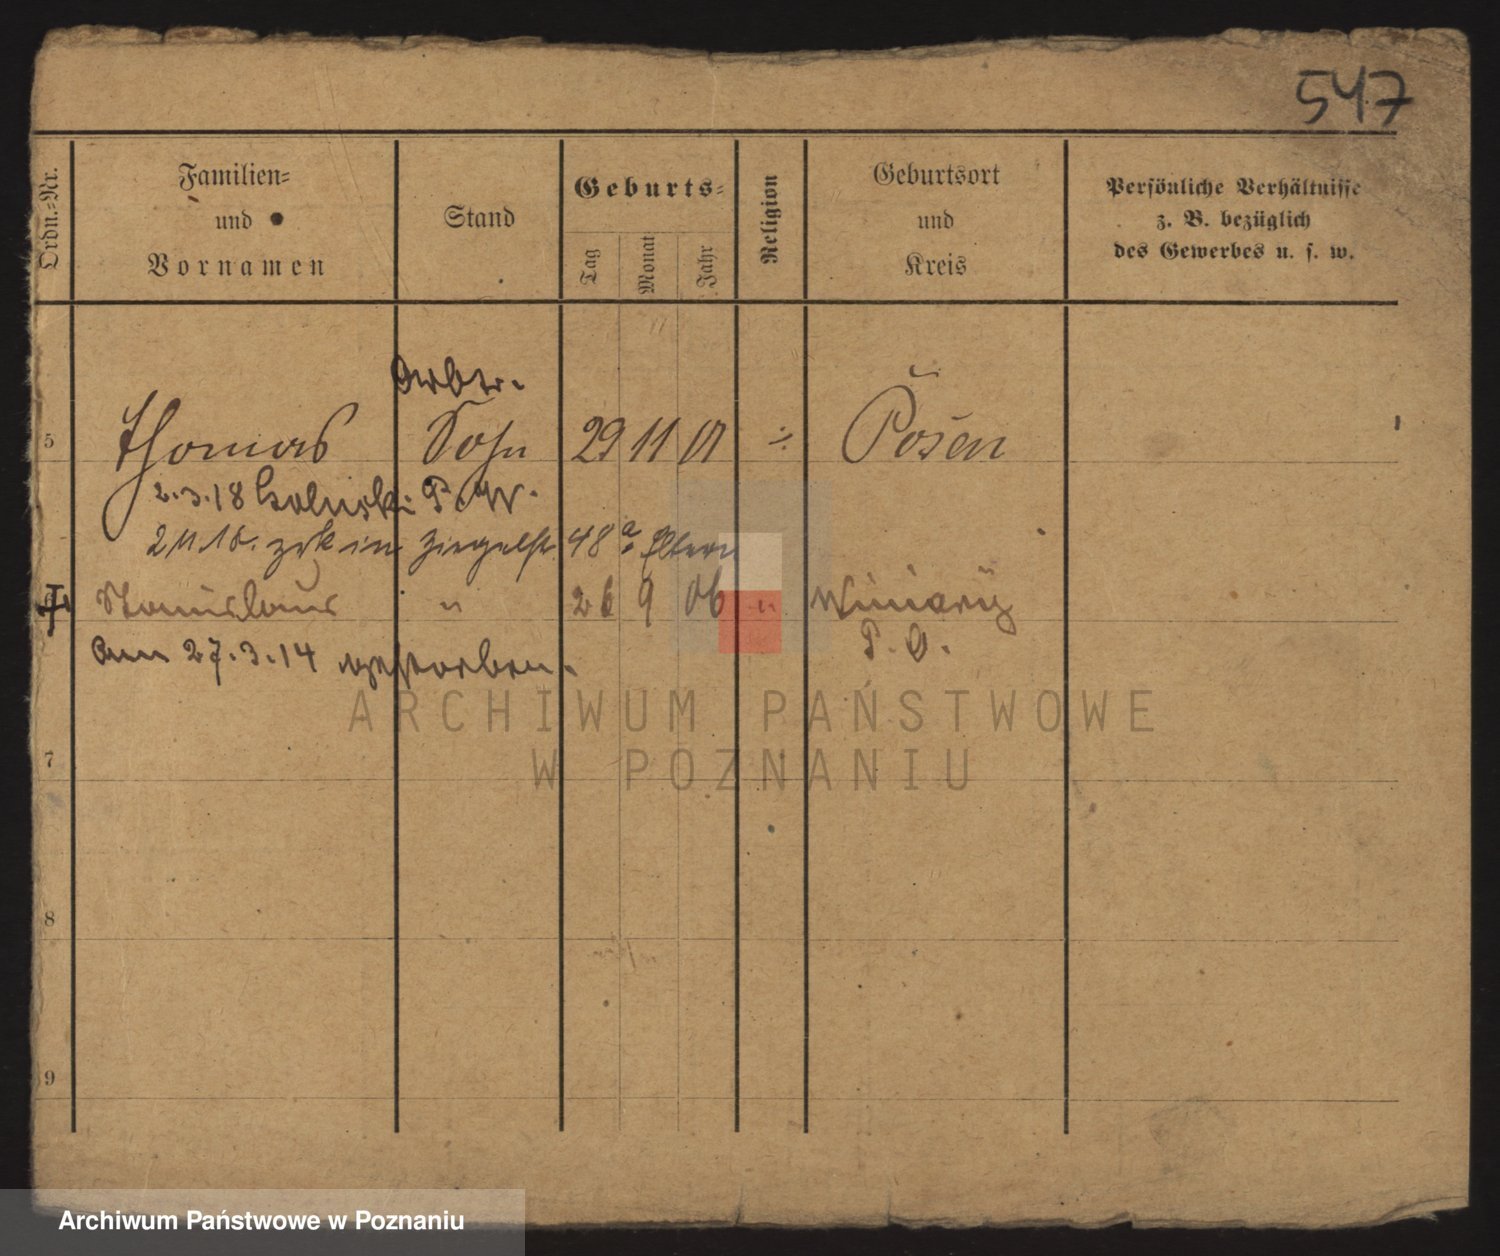 547
Ordn.-Nr.
Familien-
und
Vornamen
Stand
Geburts-
Tag
Monat
Jahr
Religion
Geburtsort
und
Kreis
Persönliche Verhältnisse
z. B. bezüglich
des Gewerbes u. s. w.
Arbtr.
5 Thomas Sohn 29 11 01 Posen
2.3.18
zrk in Ziegelst. 48 a Eltern
† Stanislaus " 26 9 06 " Winiary
P. O.
am 27.3.14 gestorben.
7
8
9
ARCHIWUM PAŃSTWOWE
W POZNANIU
Archiwum Państwowe w Poznaniu